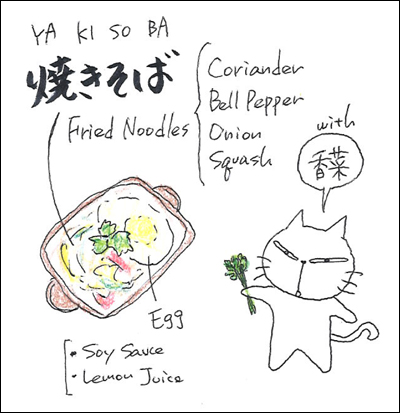 YA KI SO BA
焼きそば
Fried Noodles
Coriander
Bell Pepper
Onion
Squash
with
香菜
Egg
・Soy Sauce
・Lemon Juice